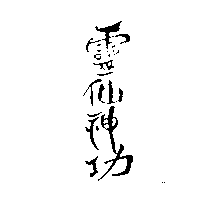 靈仙神功